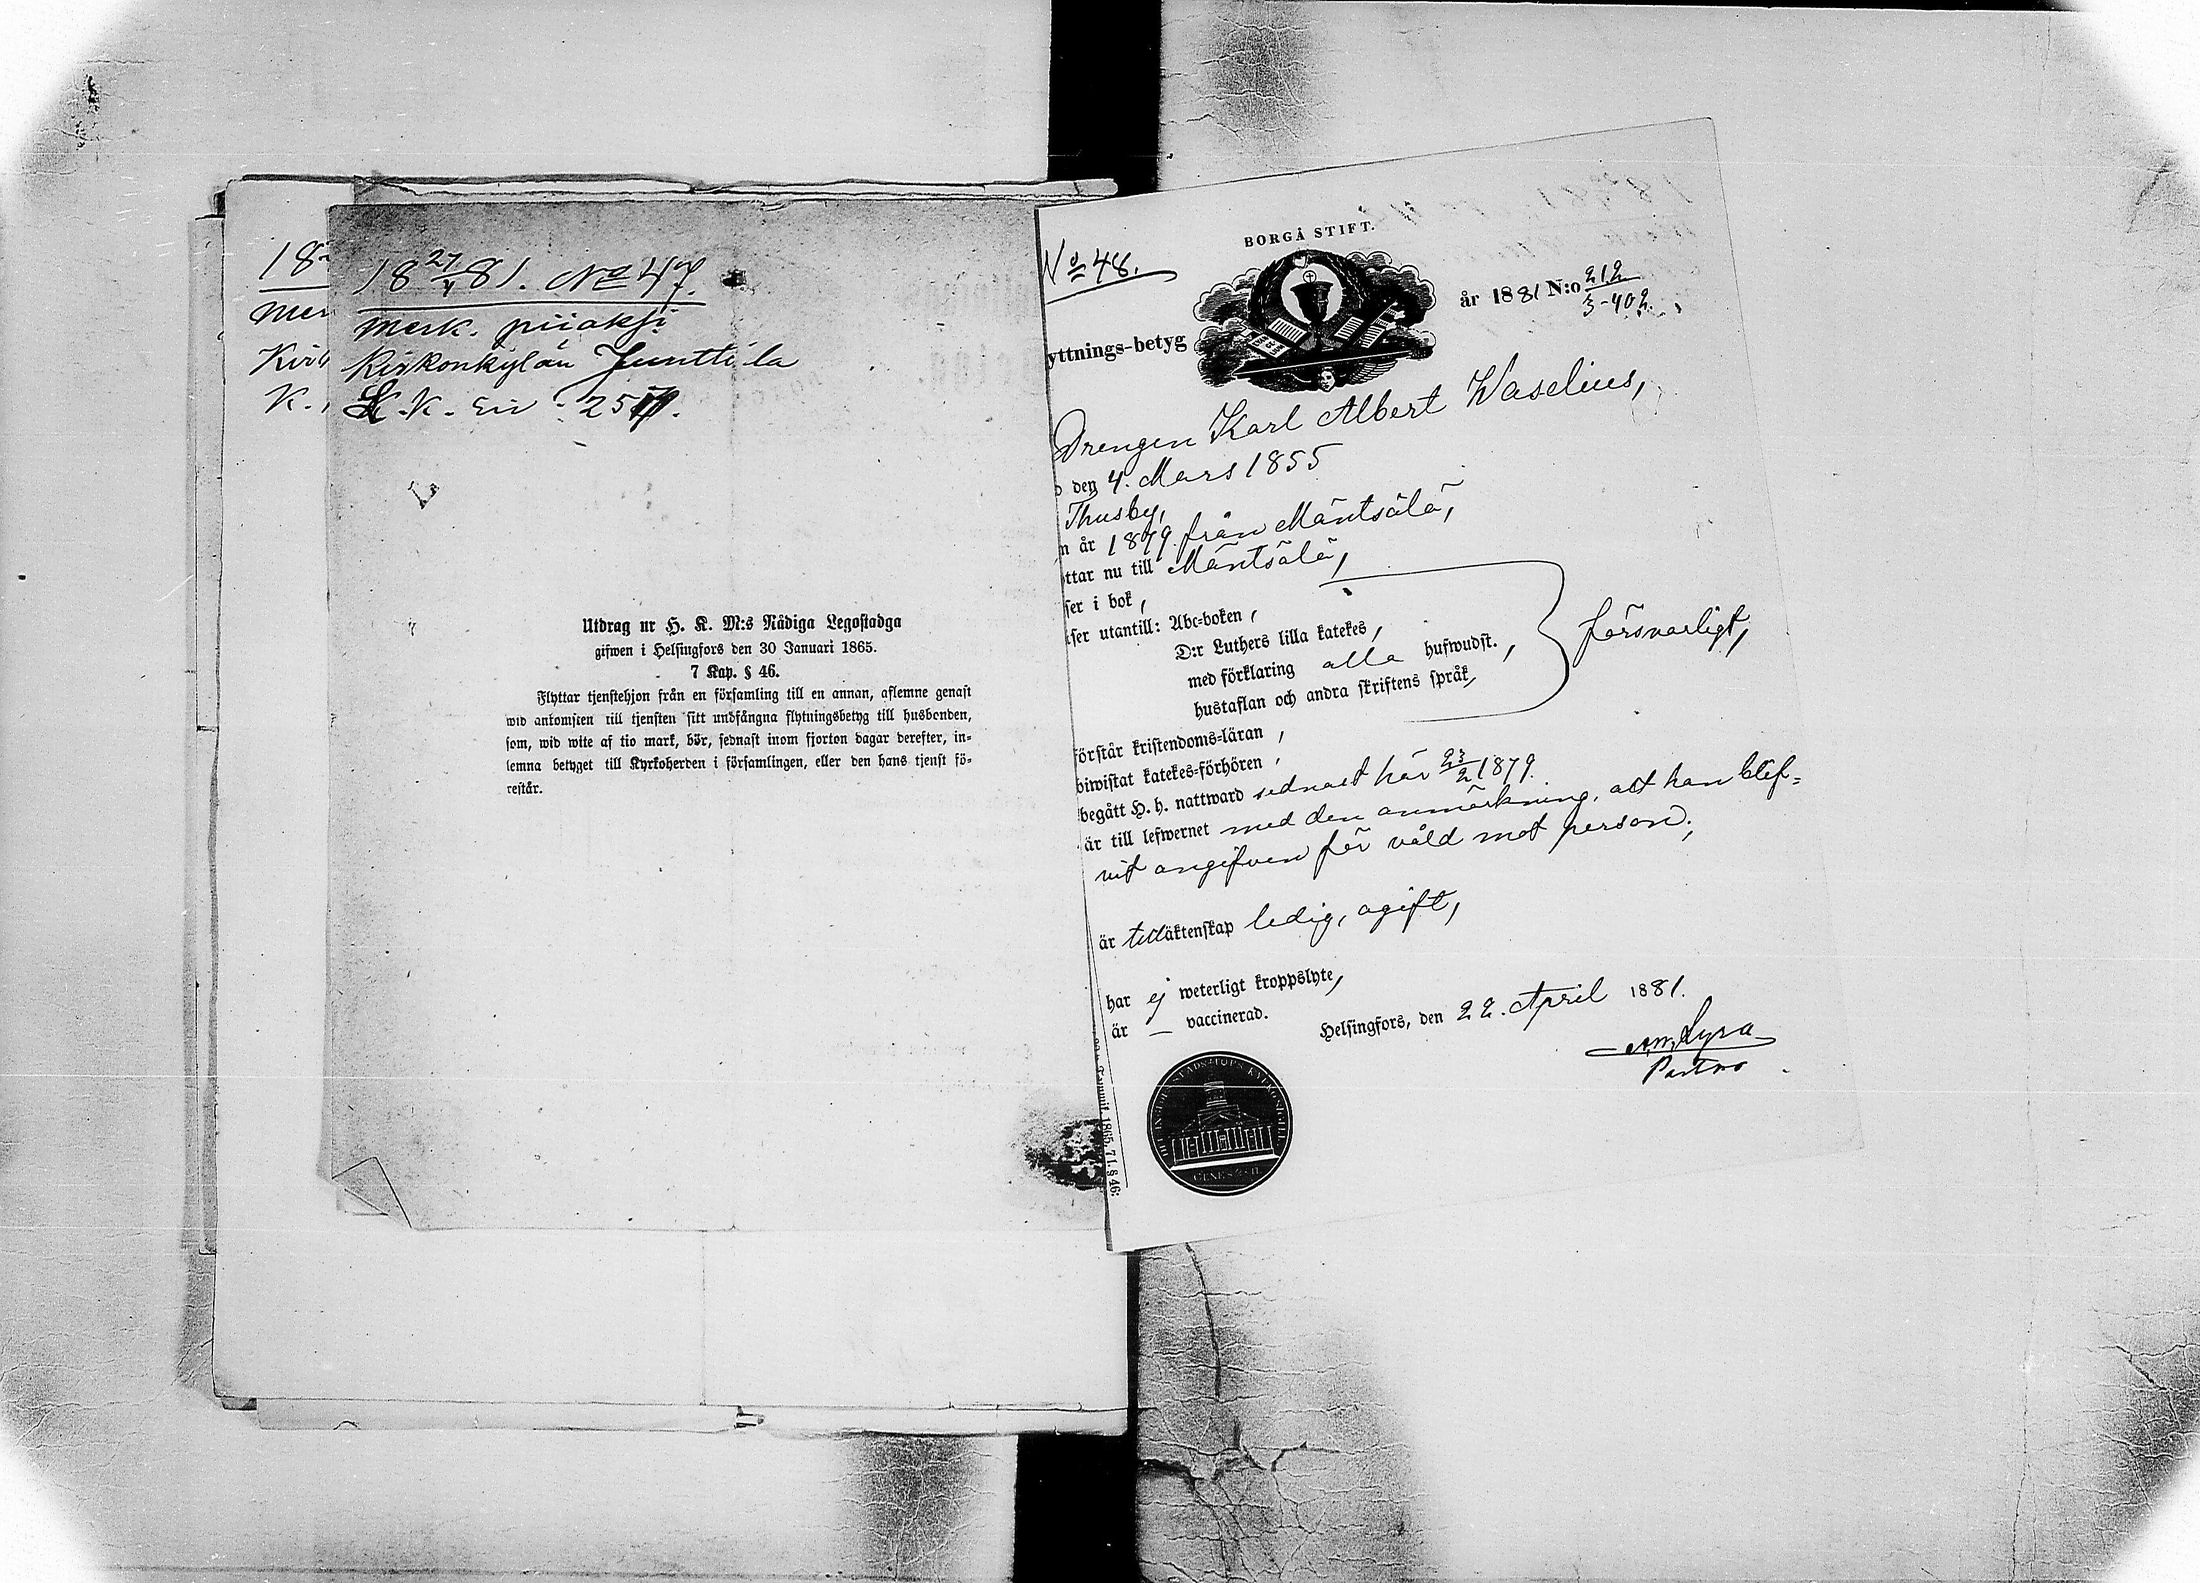 18
mer
Kirk
K.
18 27/4 81. No 47.
merk. piiaksi
Kirkonkylän Junttila
K. K. siv. 257.
Utdrag ur H. K. M:s Nådiga Legostadga
gifwen i Helsingfors den 30 Januari 1865.
7 Kap. § 46.
Flyttar tjenstehjon från en församling till en annan, aflemne genast
wid ankomsten till tjensten sitt undfångna flytningsbetyg till husbonden,
som, wid wite af tio mark, bör, sednast inom fjorton dagar derefter, in=
lemna betyget till Kyrkoherden i församlingen, eller den hans tjenst fö=
restår.
BORGÅ STIFT.
No 48.
år 1881 N:o 212
3-402.
yttnings-betyg
Drengen Karl Albert Waselius,
den 4. Mars 1855
Thusby,
n år 1879 från Mäntsälä,
ttar nu till Mäntsälä,
ser i bok,
ser utantill: Abc=boken,
D:r Luthers lilla katekes,
med förklaring alla hufwudst.,
hustaflan och andra skriftens språk,
försvarligt,
örstår kristendoms=läran,
biwistat katekes=förhören,
begått H. h. nattward sednast här 23/2 1879.
är till lefwernet med den anmärkning, att han blif=
vit angifven för våld mot person;
är till äktenskap ledig, ogift,
har ej weterligt kroppslyte,
är — vaccinerad.
Helsingfors, den 22. April 1881.
A.W. Lyra
Pastor
1865, 7 k. § 46: